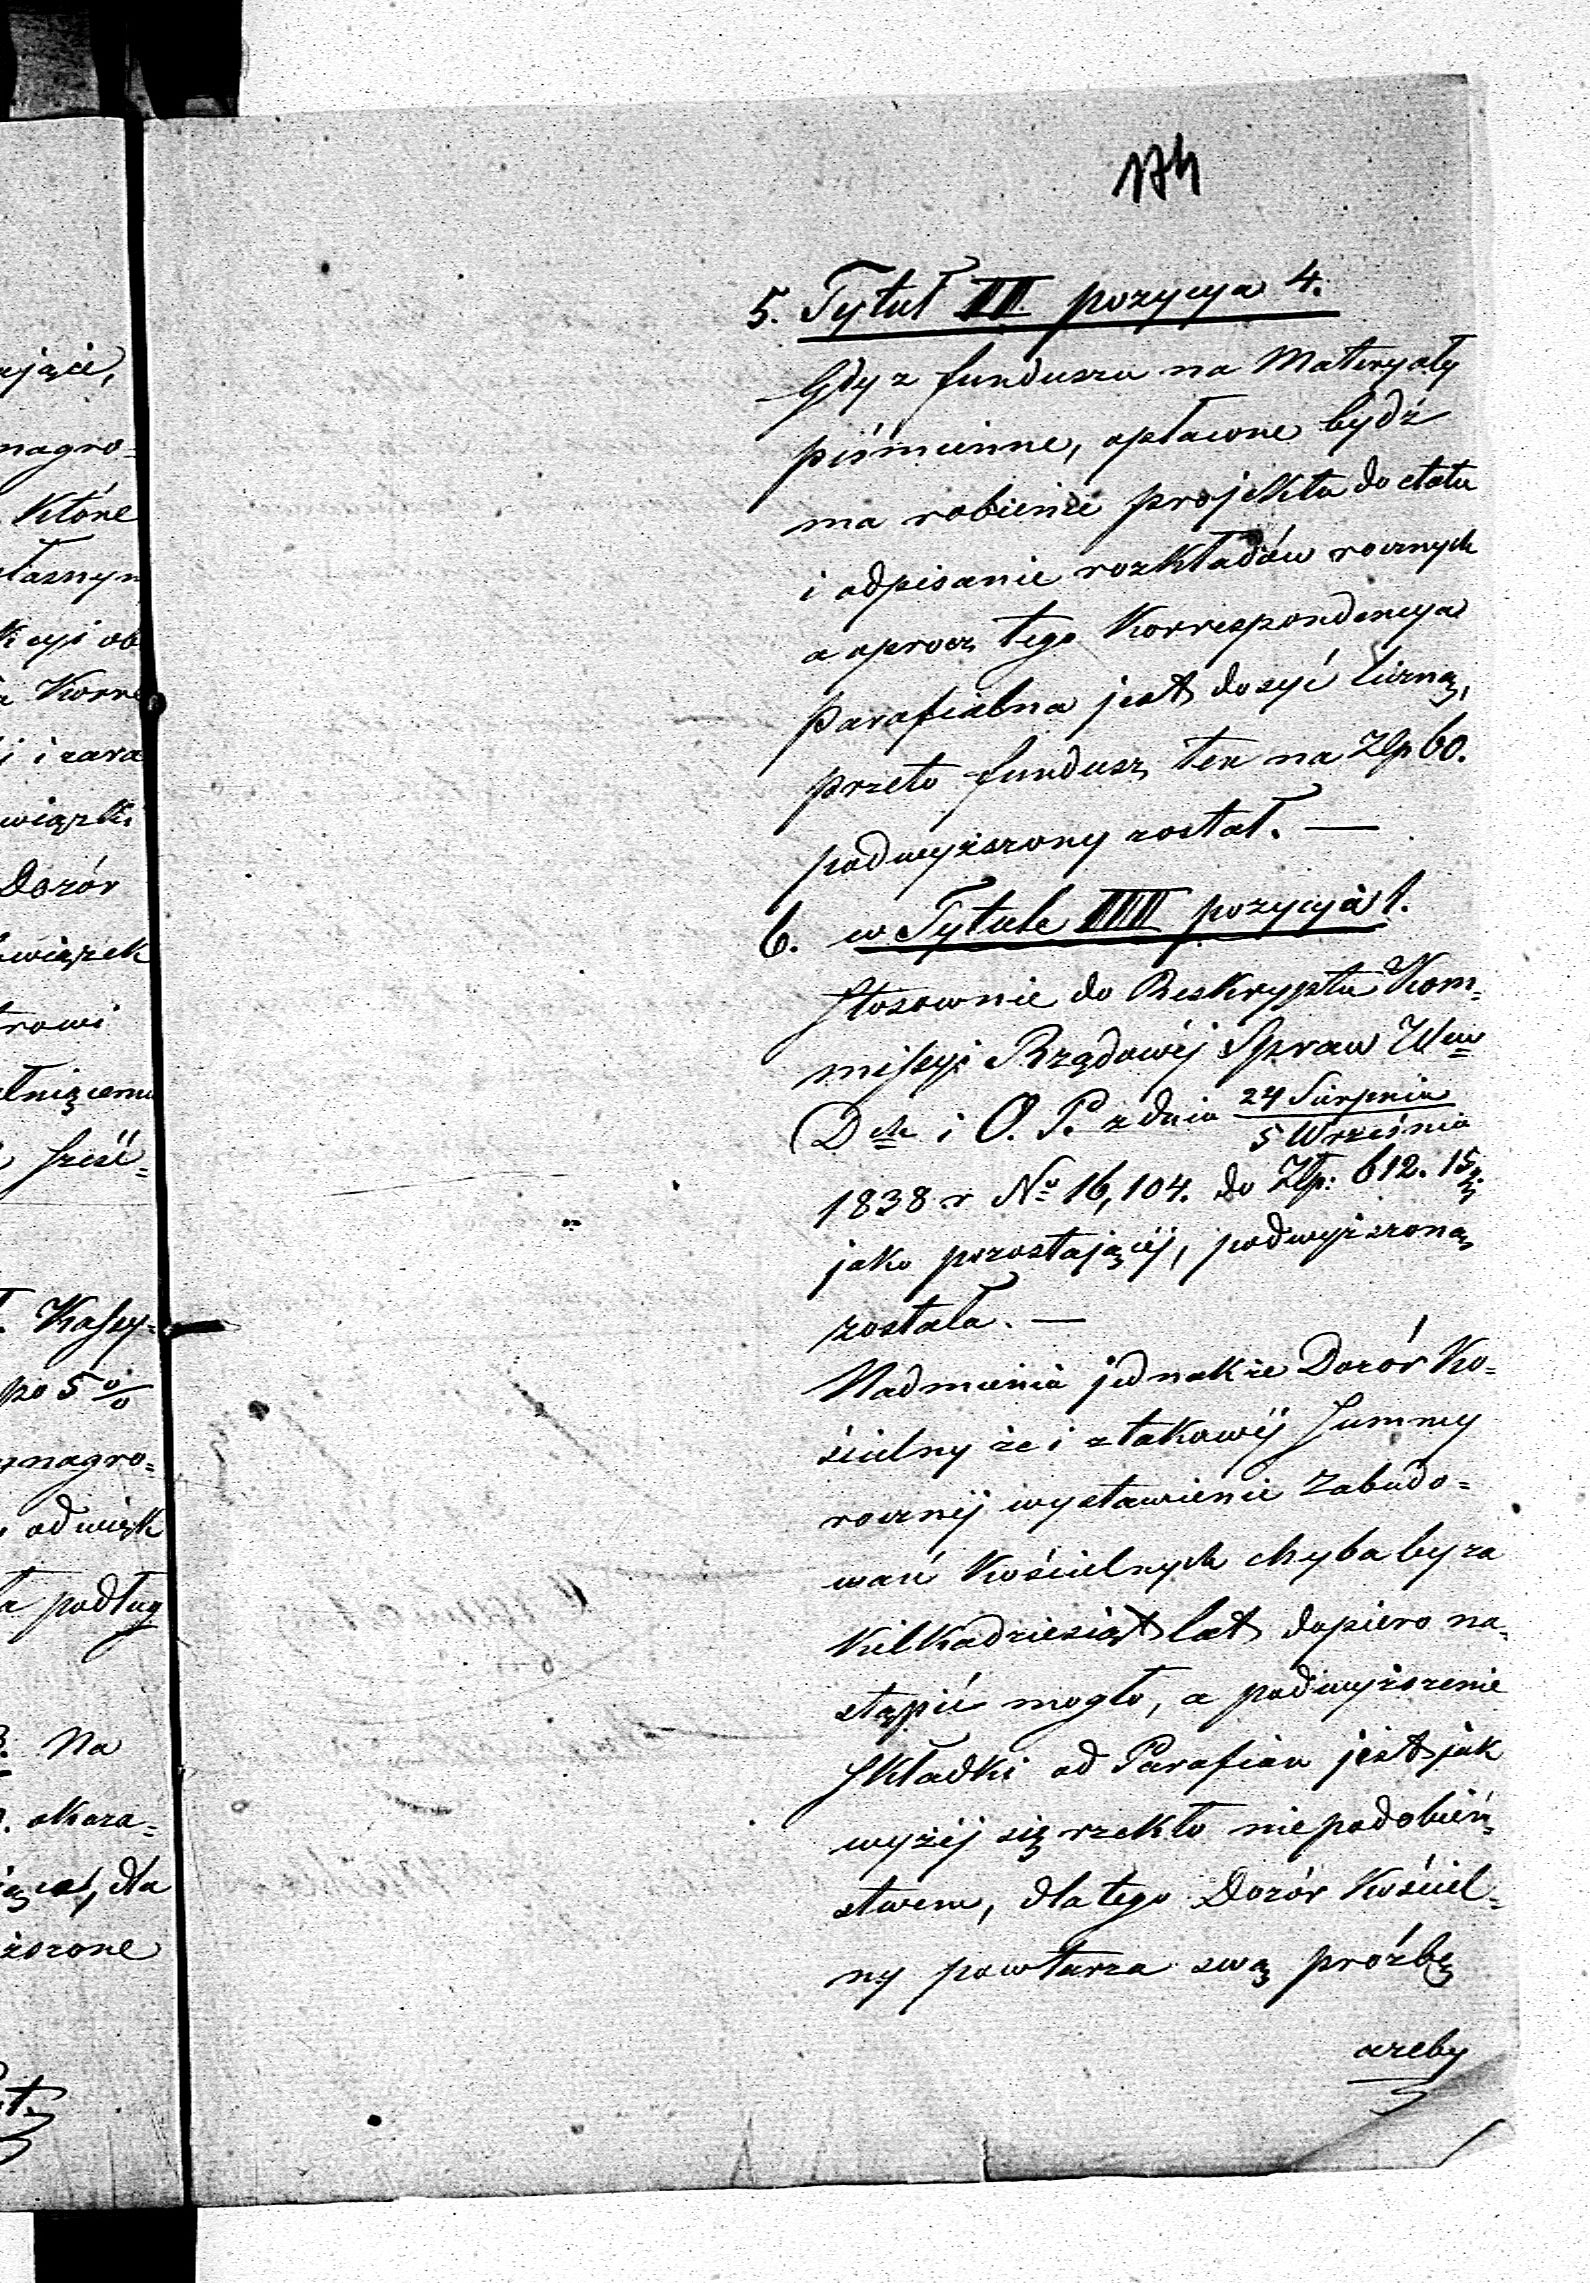 174
5. Tytuł III. pozycya 4.
Gdy z funduszu na Materyały
piśmienne, opłacone bydź
ma robienie projektu do etatu
i odpisanie rozkładów rocznych
a oprócz tego Korrespondencya
Parafialna jest dosyć liczną,
przeto fundusz ten na Złp 60.
podwyższony został. —
6. w Tytule IIII pozycyia 1.
Stosownie do Reskryptu Kom-
missyi Rządowéj Spraw Www
Dch i O. P. z dnia 24 Sierpnia
5 Września
1838 r No 16,104. do Złp: 612. 15
jako pozostającéj, podwyższoną
została. —
Nadmienia jednakże Dozór Ko=
ścielny że i z takowéj Summy
rocznéj wystawienie Zabudo=
wań Kościelnych chyba by za
Kilkadziesiąt lat dopiero na-
stąpić mogło, a podwyższenie
Składki od Parafian jest jak
wyżéj się rzekło niepodobień-
stwem, dla tego Dozór Kościel=
ny powtarza swą proźbę
ażeby
ające,
nagro=
Które
łasnym
Kcyi ob
Korre
i zara
wiązki
Dozór
wiązek
łniącemu
sześć=
Kassy=
po 5 %
nagro=
podług
Na
okaza=
dla